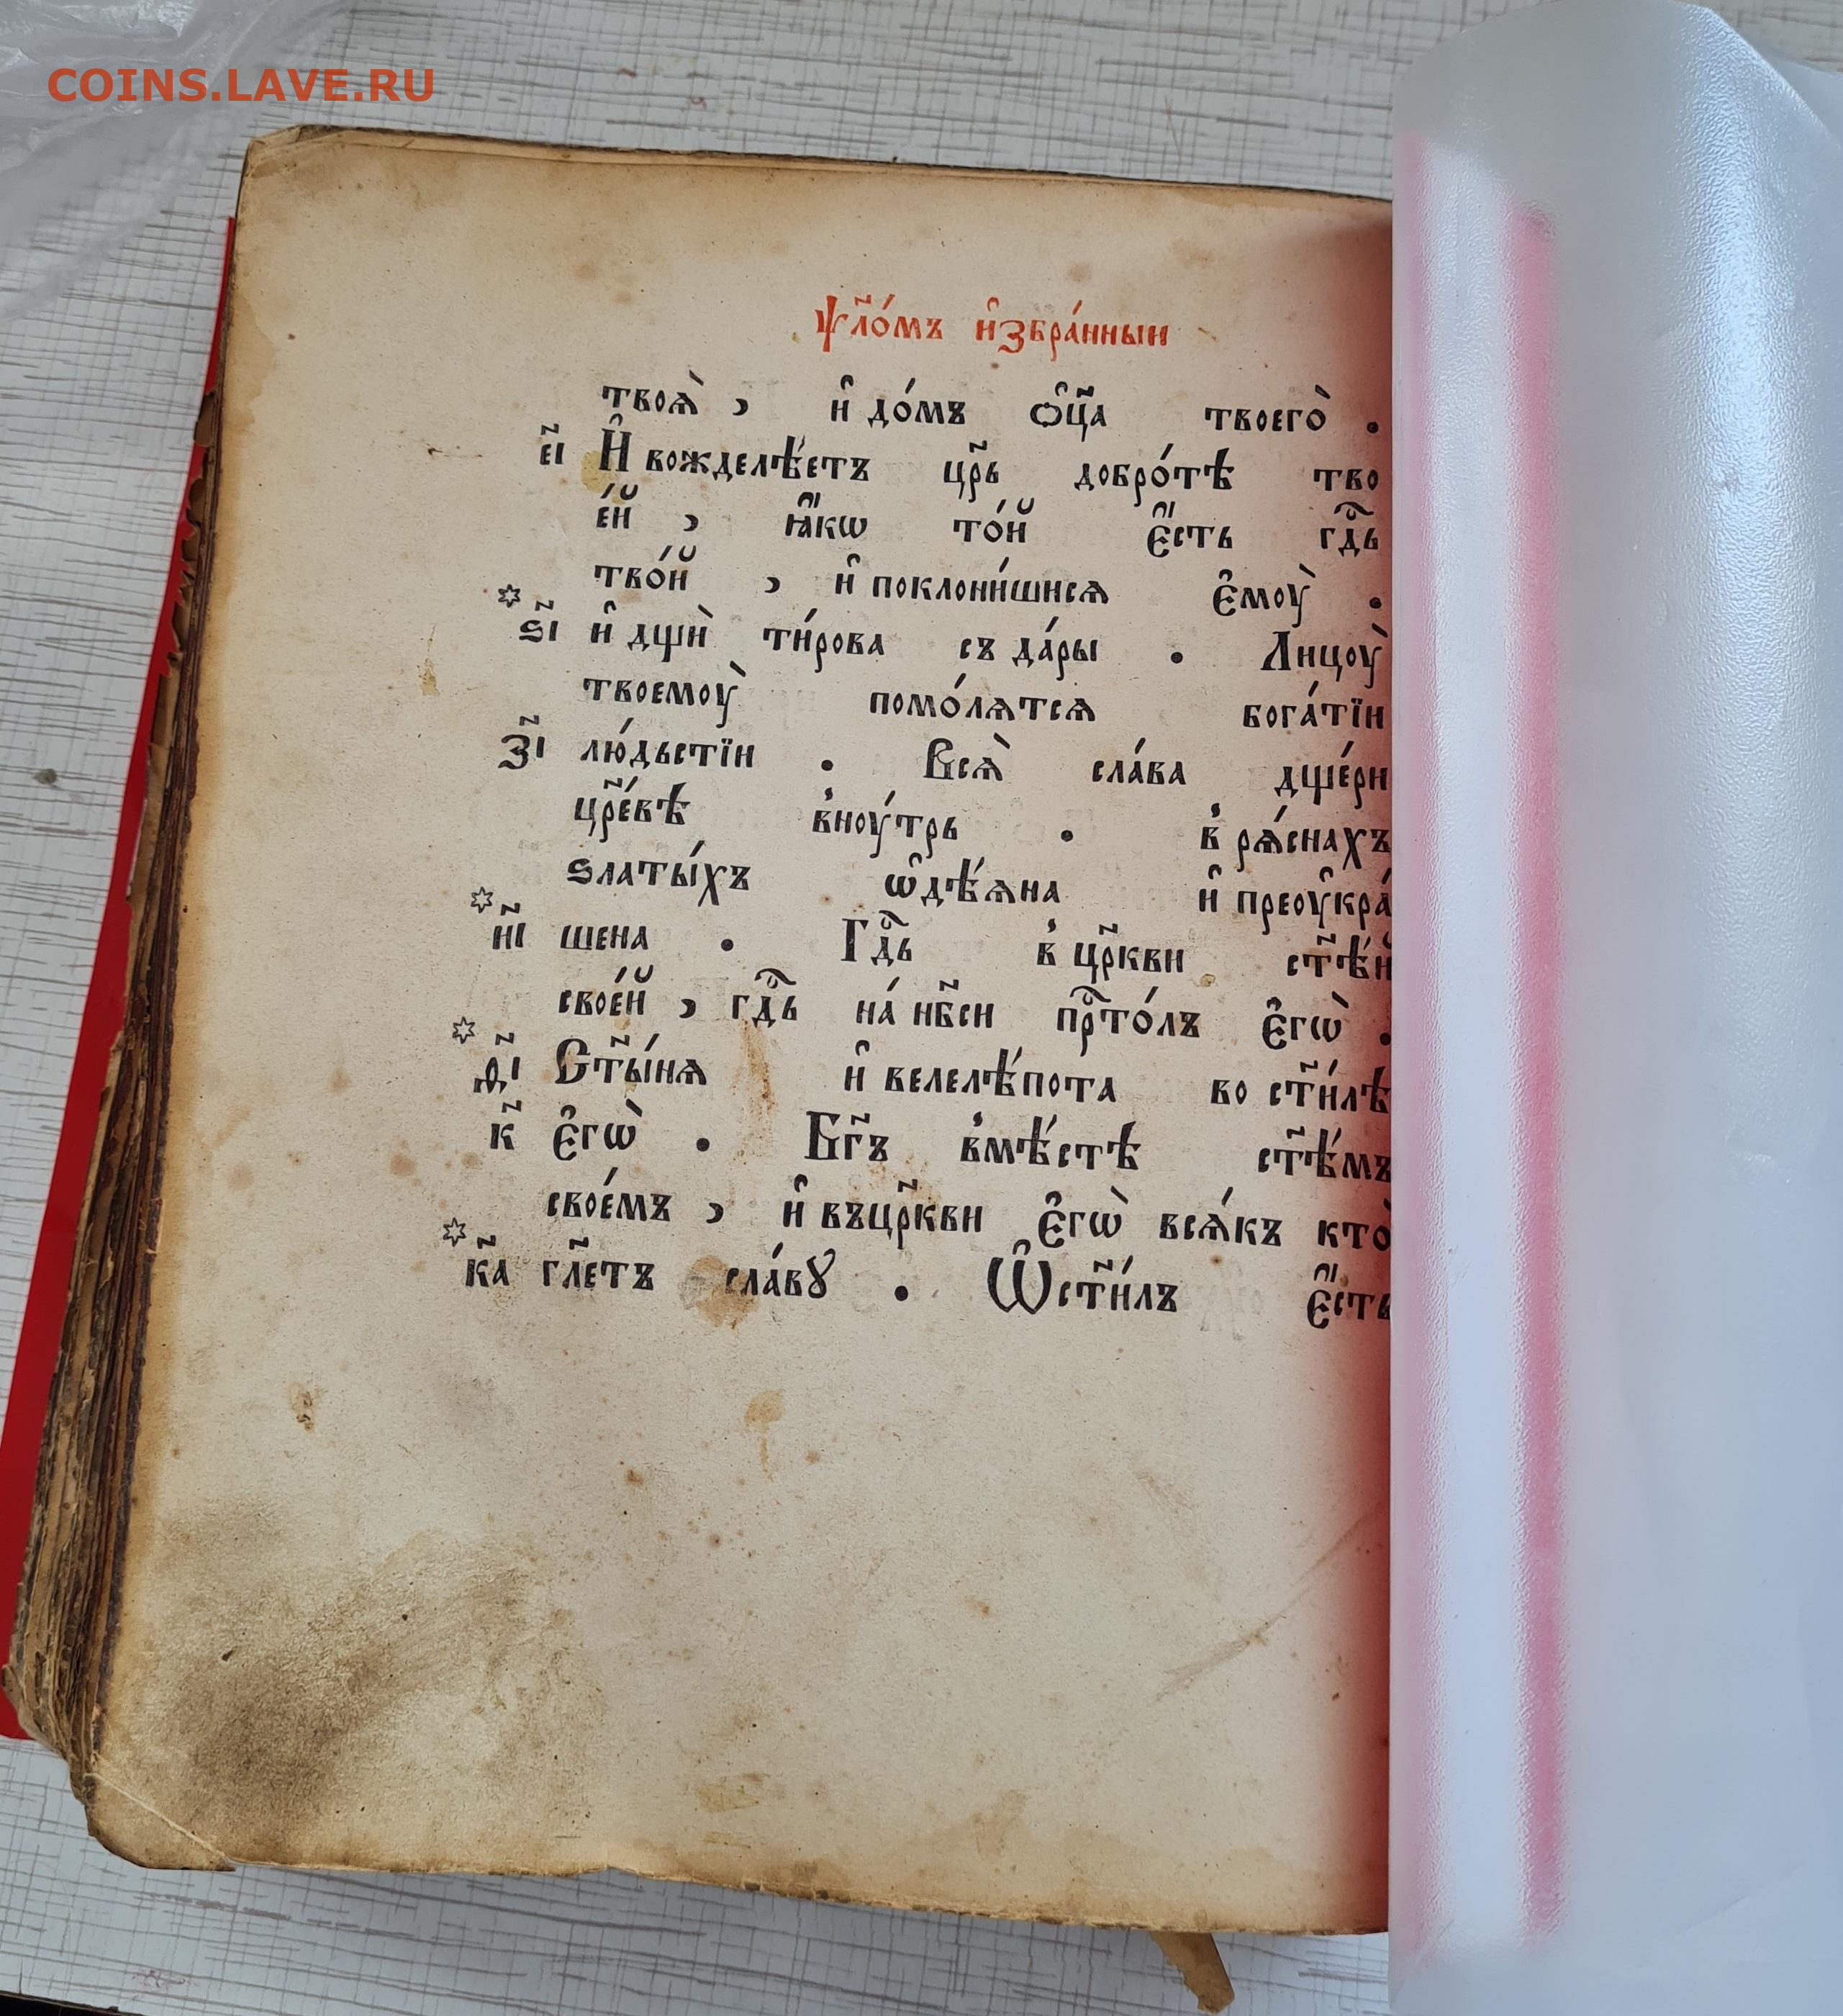 COINS.LAVE.RU
ѱл҃о́мъ и҆збра́нныи
твоѧ̀ , и҆ до́мъ ѻ҆ц҃а твоего̀ .
е҃і И҆ вожделѣ́етъ цр҃ь добро́тѣ тво
е́й , ꙗ҆́кѡ то́й є҆́сть гдⷭ҇ь
тво́й , и҆ поклони́шисѧ є҆моу̀ .
ѕ҃і и҆ дщѝ ти́рова съ да́ры . Лицоу̀
твоемоу̀ помо́лѧтсѧ бога́тїи
з҃і лю́дьстїи . Всѧ̀ сла́ва дще́ри
цр҃е́вѣ вноу́трь . в рѧ́снахъ
ѕлаты́хъ ѡ҆дѣ́ѧна и҆ преоу҆кра́
и҃і шена . Гдⷭ҇ь в цр҃кви ст҃ѣ́й
свое́й , гдⷭ҇ь на́ нб҃си прⷭ҇то́лъ є҆гѡ̀ .
д҃і Ст҃ы́нѧ и҆ велелѣ́пота во ст҃и́лѣ
к҃ є҆гѡ̀ . Бг҃ъ вмѣ́стѣ ст҃ѣ́мъ
свое́мъ , и҆ въцр҃кви є҆гѡ̀ всѧ́къ кто̀
к҃а гл҃етъ сла́вꙋ . Ѡ҆ст҃и́лъ є҆́сть